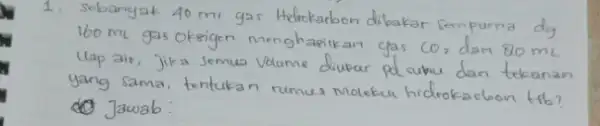 1. Sebanyak 40 ml gas Hidrokarbon dibakar sempurna dg
160 mL gas oksigen menghasilkan gas CO2 dan 80 mL
Uap air, jika semua volume diukur pd suhu dan tekanan
yang sama, tentukan rumus molekul hidrokarbon tsb?
Jawab: